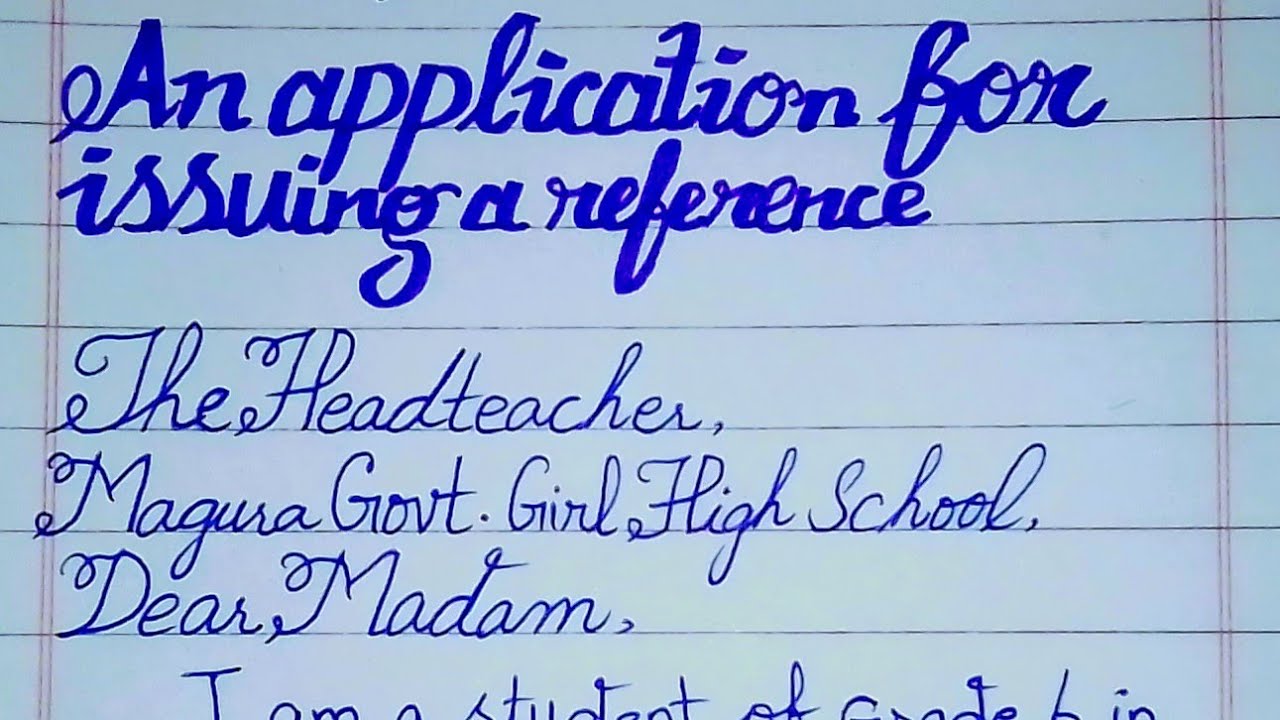 An application for
issuing a reference
The Headteacher,
Magura Govt. Girl High School,
Dear Madam,
I am a student of Grade 6 in